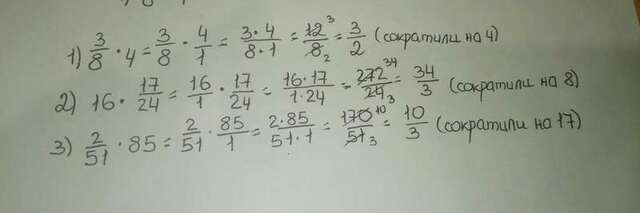 1) 3/8 · 4 = 3/8 · 4/1 = 3·4/8·1 = 12 3/8 2 = 3/2 (сократили на 4)
2) 16 · 17/24 = 16/1 · 17/24 = 16·17/1·24 = 272 34/24 3 = 34/3 (сократили на 8)
3) 2/51 · 85 = 2/51 · 85/1 = 2·85/51·1 = 170 10/51 3 = 10/3 (сократили на 17)